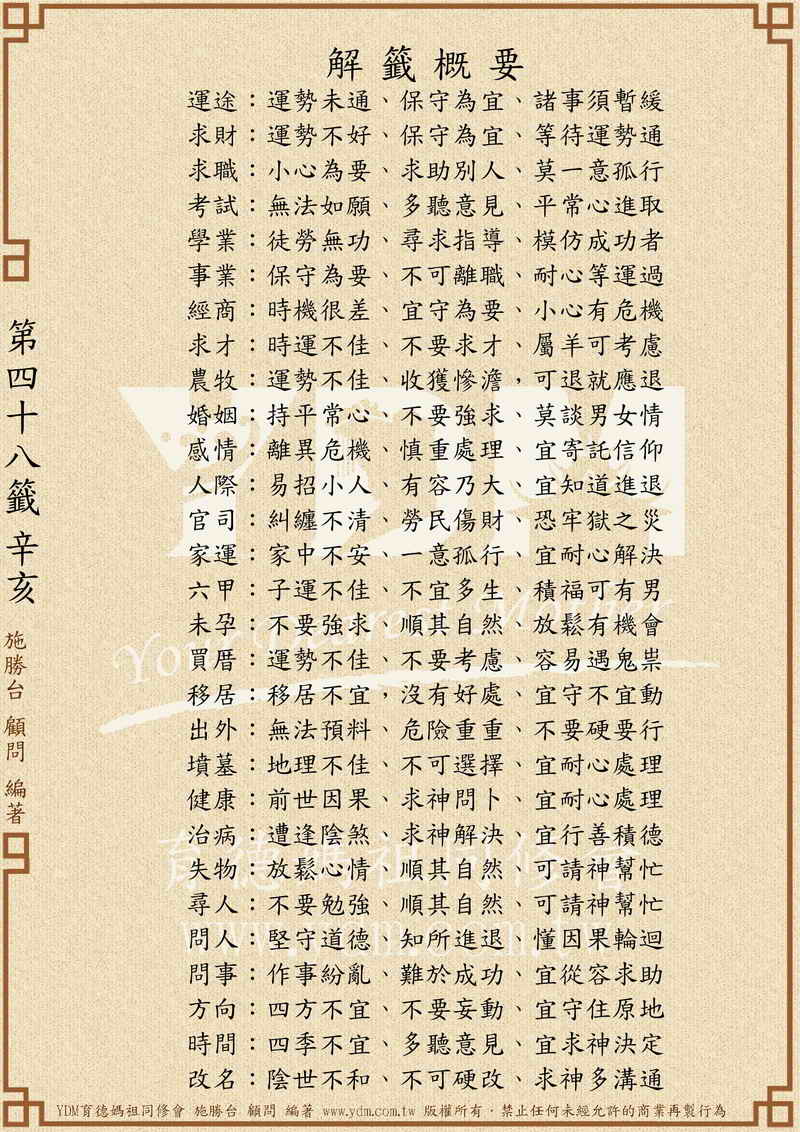 解籤概要
運途：運勢未通、保守為宜、諸事須暫緩
求財：運勢不好、保守為宜、等待運勢通
求職：小心為要、求助別人、莫一意孤行
考試：無法如願、多聽意見、平常心進取
學業：徒勞無功、尋求指導、模仿成功者
事業：保守為要、不可離職、耐心等運過
經商：時機很差、宜守為要、小心有危機
求才：時運不佳、不要求才、屬羊可考慮
農牧：運勢不佳、收獲慘澹，可退就應退
婚姻：持平常心、不要強求、莫談男女情
感情：離異危機、慎重處理、宜寄託信仰
人際：易招小人、有容乃大、宜知道進退
官司：糾纏不清、勞民傷財、恐牢獄之災
家運：家中不安、一意孤行、宜耐心解決
六甲：子運不佳、不宜多生、積福可有男
未孕：不要強求、順其自然、放鬆有機會
買厝：運勢不佳、不要考慮、容易遇鬼祟
移居：移居不宜，沒有好處、宜守不宜動
出外：無法預料、危險重重、不要硬要行
墳墓：地理不佳、不可選擇、宜耐心處理
健康：前世因果、求神問卜、宜耐心處理
治病：遭逢陰煞、求神解決、宜行善積德
失物：放鬆心情、順其自然、可請神幫忙
尋人：不要勉強、順其自然、可請神幫忙
問人：堅守道德、知所進退、懂因果輪迴
問事：作事紛亂、難於成功、宜從容求助
方向：四方不宜、不要妄動、宜守住原地
時間：四季不宜、多聽意見、宜求神決定
改名：陰世不和、不可硬改、求神多溝通
第四十八籤 辛亥
施勝台 顧問 編著
YDM
Your Dearest Mother
育德媽祖同修會
www.ydm.com.tw
YDM育德媽祖同修會 施勝台 顧問 編著 www.ydm.com.tw 版權所有．禁止任何未經允許的商業再製行為